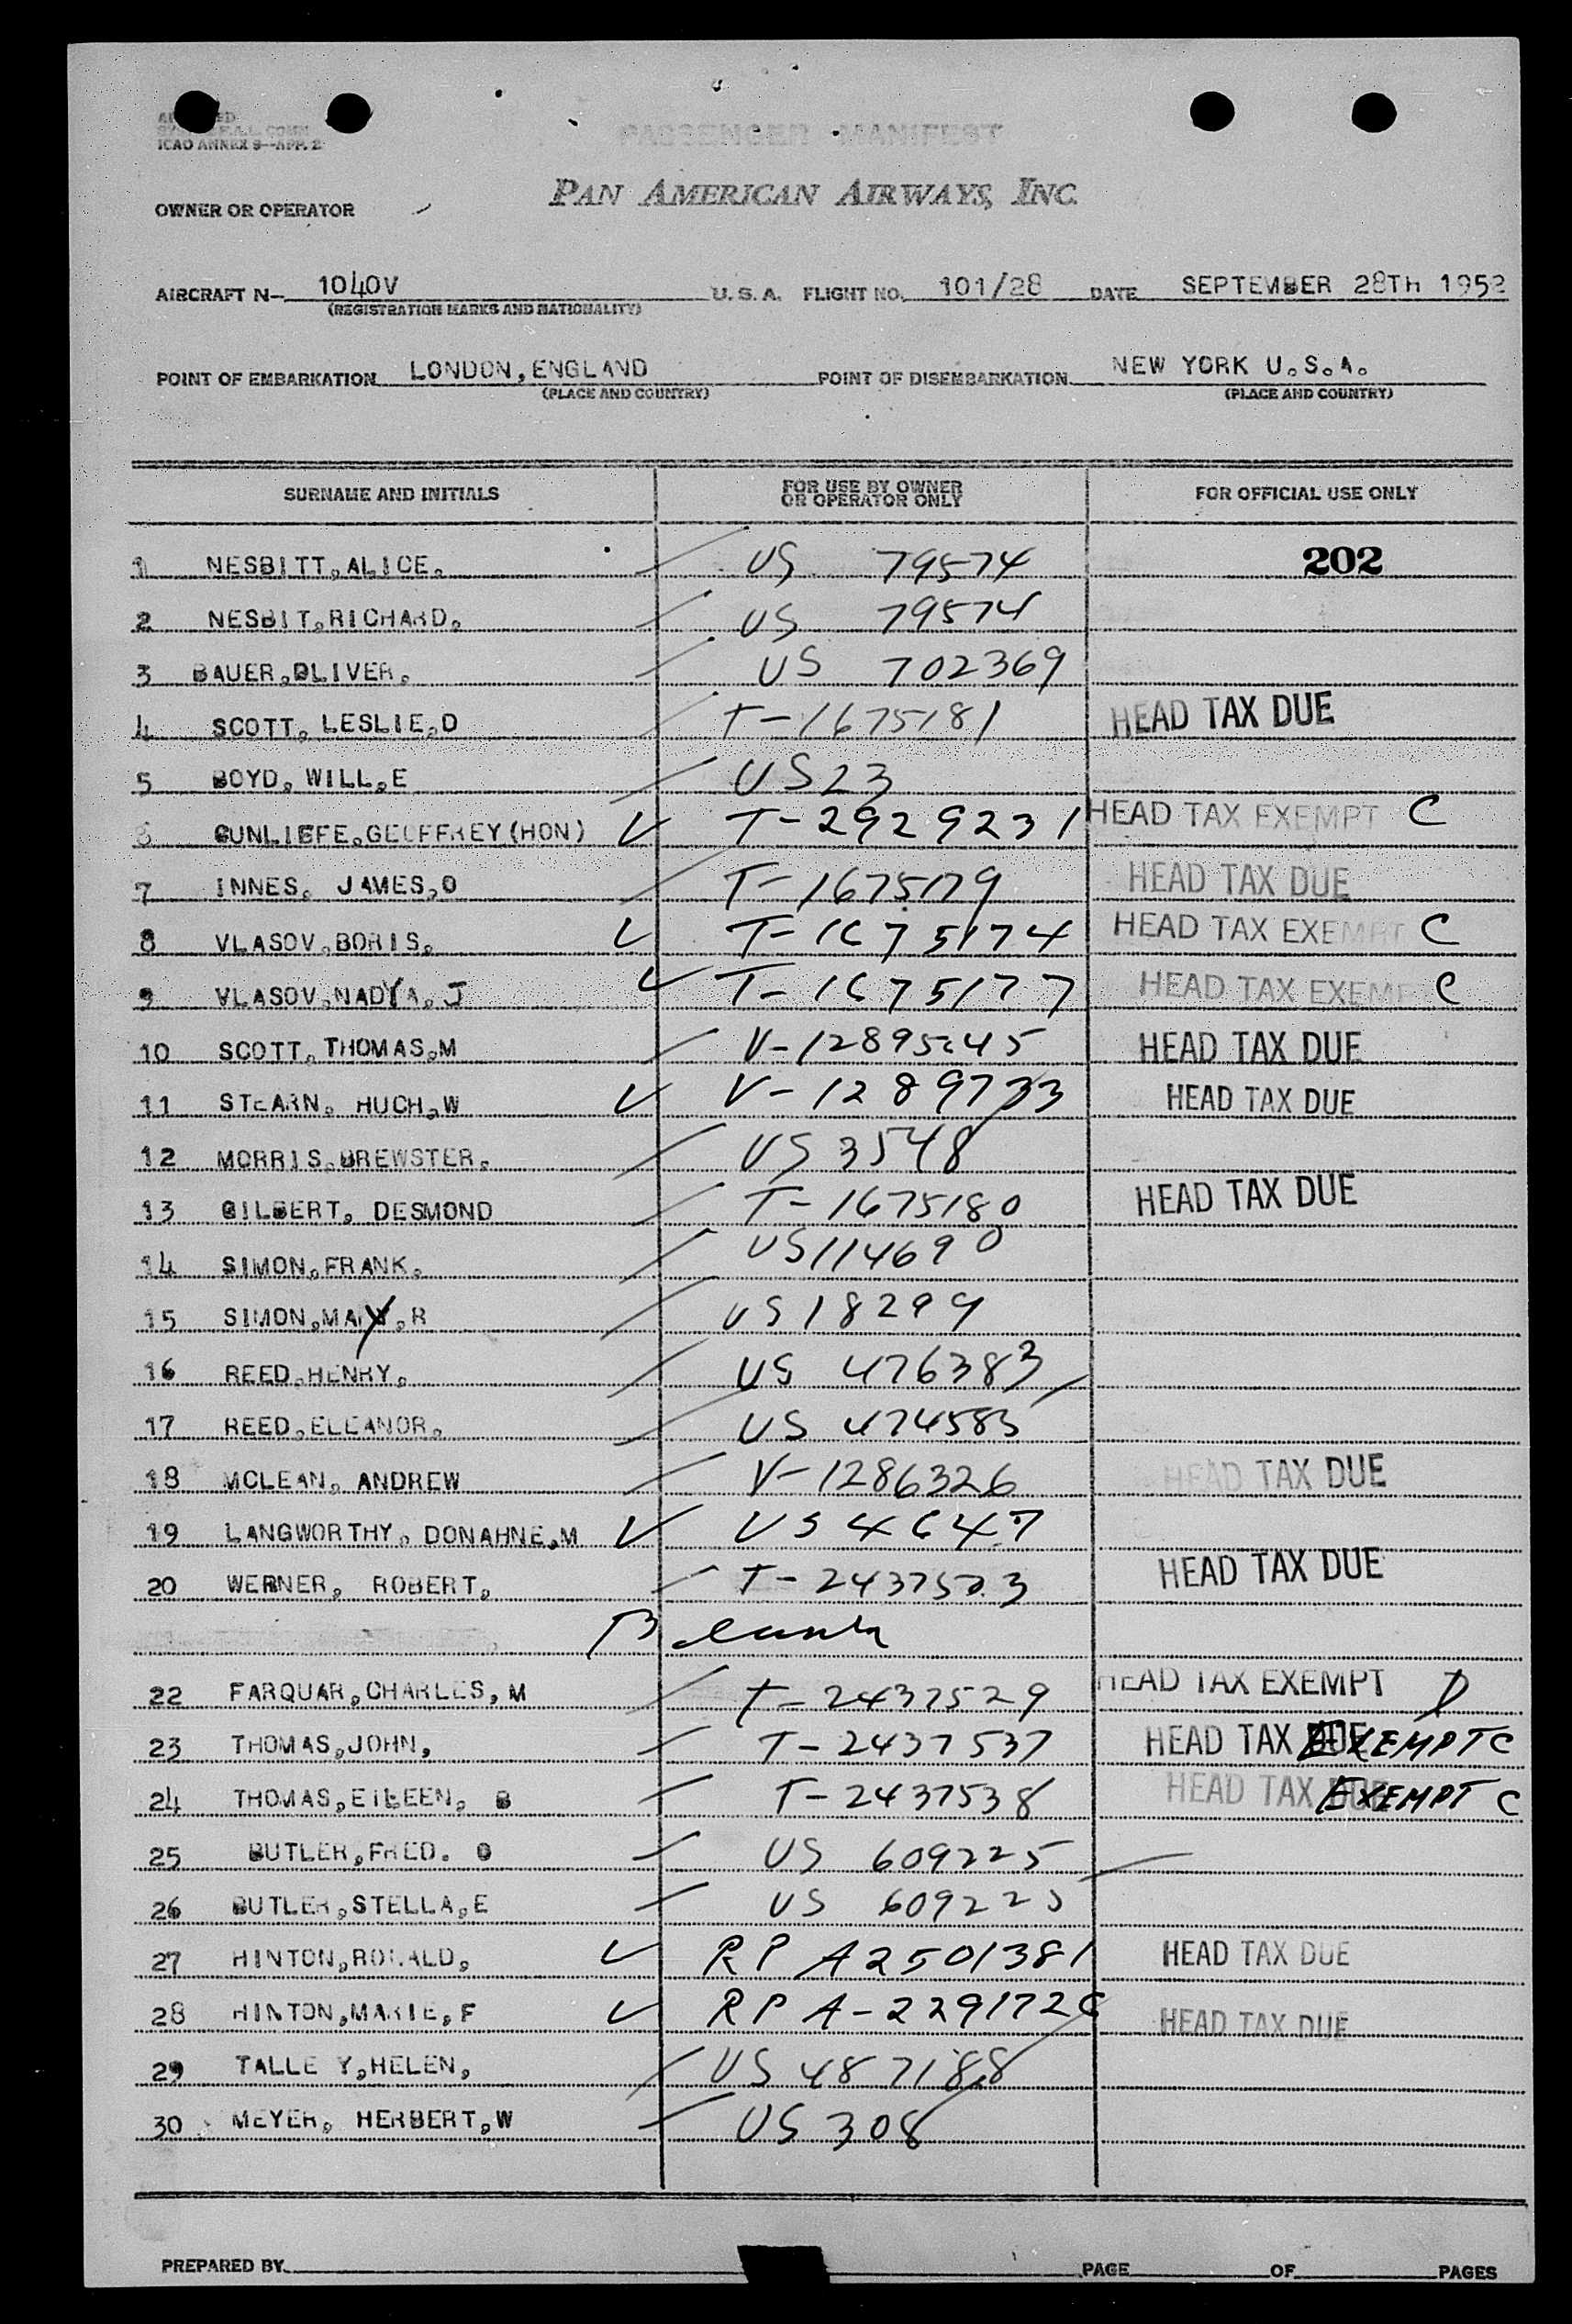 ICAO ANNEX 9—APP. 2
PASSENGER MANIFEST
PAN AMERICAN AIRWAYS, INC.
OWNER OR OPERATOR
AIRCRAFT N- 1040V U.S.A. FLIGHT NO. 101/28 DATE SEPTEMBER 28TH 1952
(REGISTRATION MARKS AND NATIONALITY)
POINT OF EMBARKATION LONDON, ENGLAND POINT OF DISEMBARKATION NEW YORK U.S.A.
(PLACE AND COUNTRY) (PLACE AND COUNTRY)
SURNAME AND INITIALS FOR USE BY OWNER OR OPERATOR ONLY FOR OFFICIAL USE ONLY
1 NESBITT, ALICE. US 79574 202
2 NESBIT, RICHARD, US 79574
3 BAUER, OLIVER, US 702369
4 SCOTT, LESLIE, D T-1675181 HEAD TAX DUE
5 BOYD, WILL, E US 23
6 CUNLIEFE, GEOFFREY (HON) T-2929231 HEAD TAX EXEMPT C
7 INNES, JAMES, O T-1675179 HEAD TAX DUE
8 VLASOV, BORIS, T-1675174 HEAD TAX EXEMPT C
9 VLASOV, NADYA, J T-1675177 HEAD TAX EXEMPT C
10 SCOTT, THOMAS, M HEAD TAX DUE
11 STEARN, HUGH, W V-1289733 HEAD TAX DUE
12 MORRIS, BREWSTER, US 3548
13 GILBERT, DESMOND T-1675180 HEAD TAX DUE
14 SIMON, FRANK, US 114690
15 SIMON, MARY, R US 18299
16 REED, HENRY, US 476383
17 REED, ELEANOR, US 474583
18 MCLEAN, ANDREW V-1286326 HEAD TAX DUE
19 LANGWORTHY, DONAHNE, M US 4647
20 WERNER, ROBERT, T-2437523 HEAD TAX DUE
22 FARQUAR, CHARLES, M T-2437529 HEAD TAX EXEMPT D
23 THOMAS, JOHN, T-2437537 HEAD TAX DUE EXEMPT C
24 THOMAS, EILEEN, B T-2437538 HEAD TAX DUE EXEMPT C
25 BUTLER, FRED. O US 609225
26 BUTLER, STELLA, E US 609225
27 HINTON, RONALD, RP A2501381 HEAD TAX DUE
28 HINTON, MARIE, F RP A-2291726 HEAD TAX DUE
29 TALLE Y, HELEN, US 487188
30 MEYER, HERBERT, W US 308
PREPARED BY PAGE OF PAGES